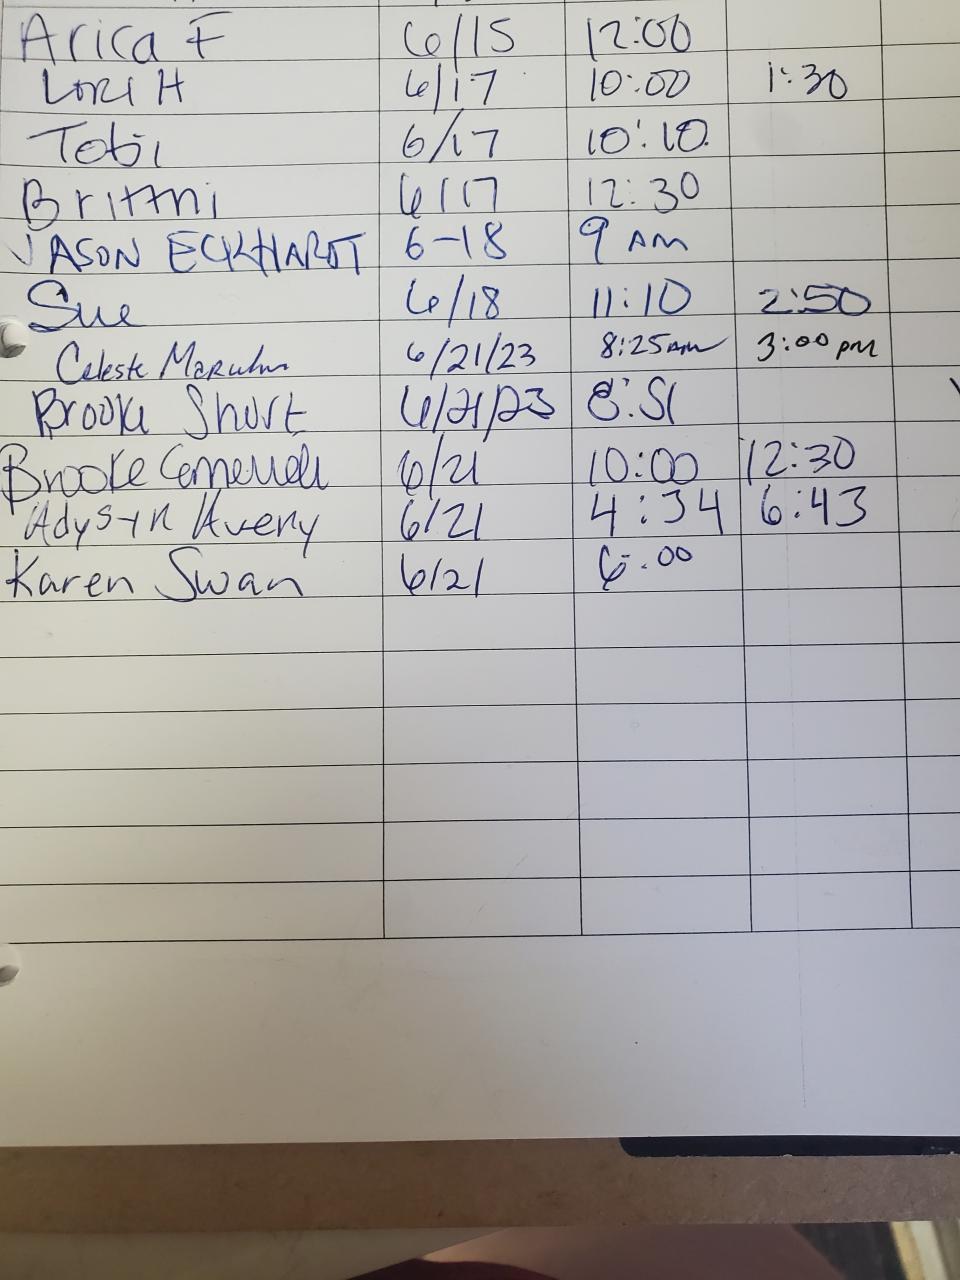 Arica F 6/15 12:00
Lori H 6/17 10:00 1:30
Tobi 6/17 10:10
Brittni 6/17 12:30
JASON ECKHARDT 6-18 9 AM
Sue 6/18 11:10 2:50
Celeste 6/21/23 8:25 AM 3:00 pm
Brooke Short 6/21/23 8:51
Brooke 6/21 10:00 12:30
Adysyn Avery 6/21 4:34 6:43
Karen Swan 6/21 6:00